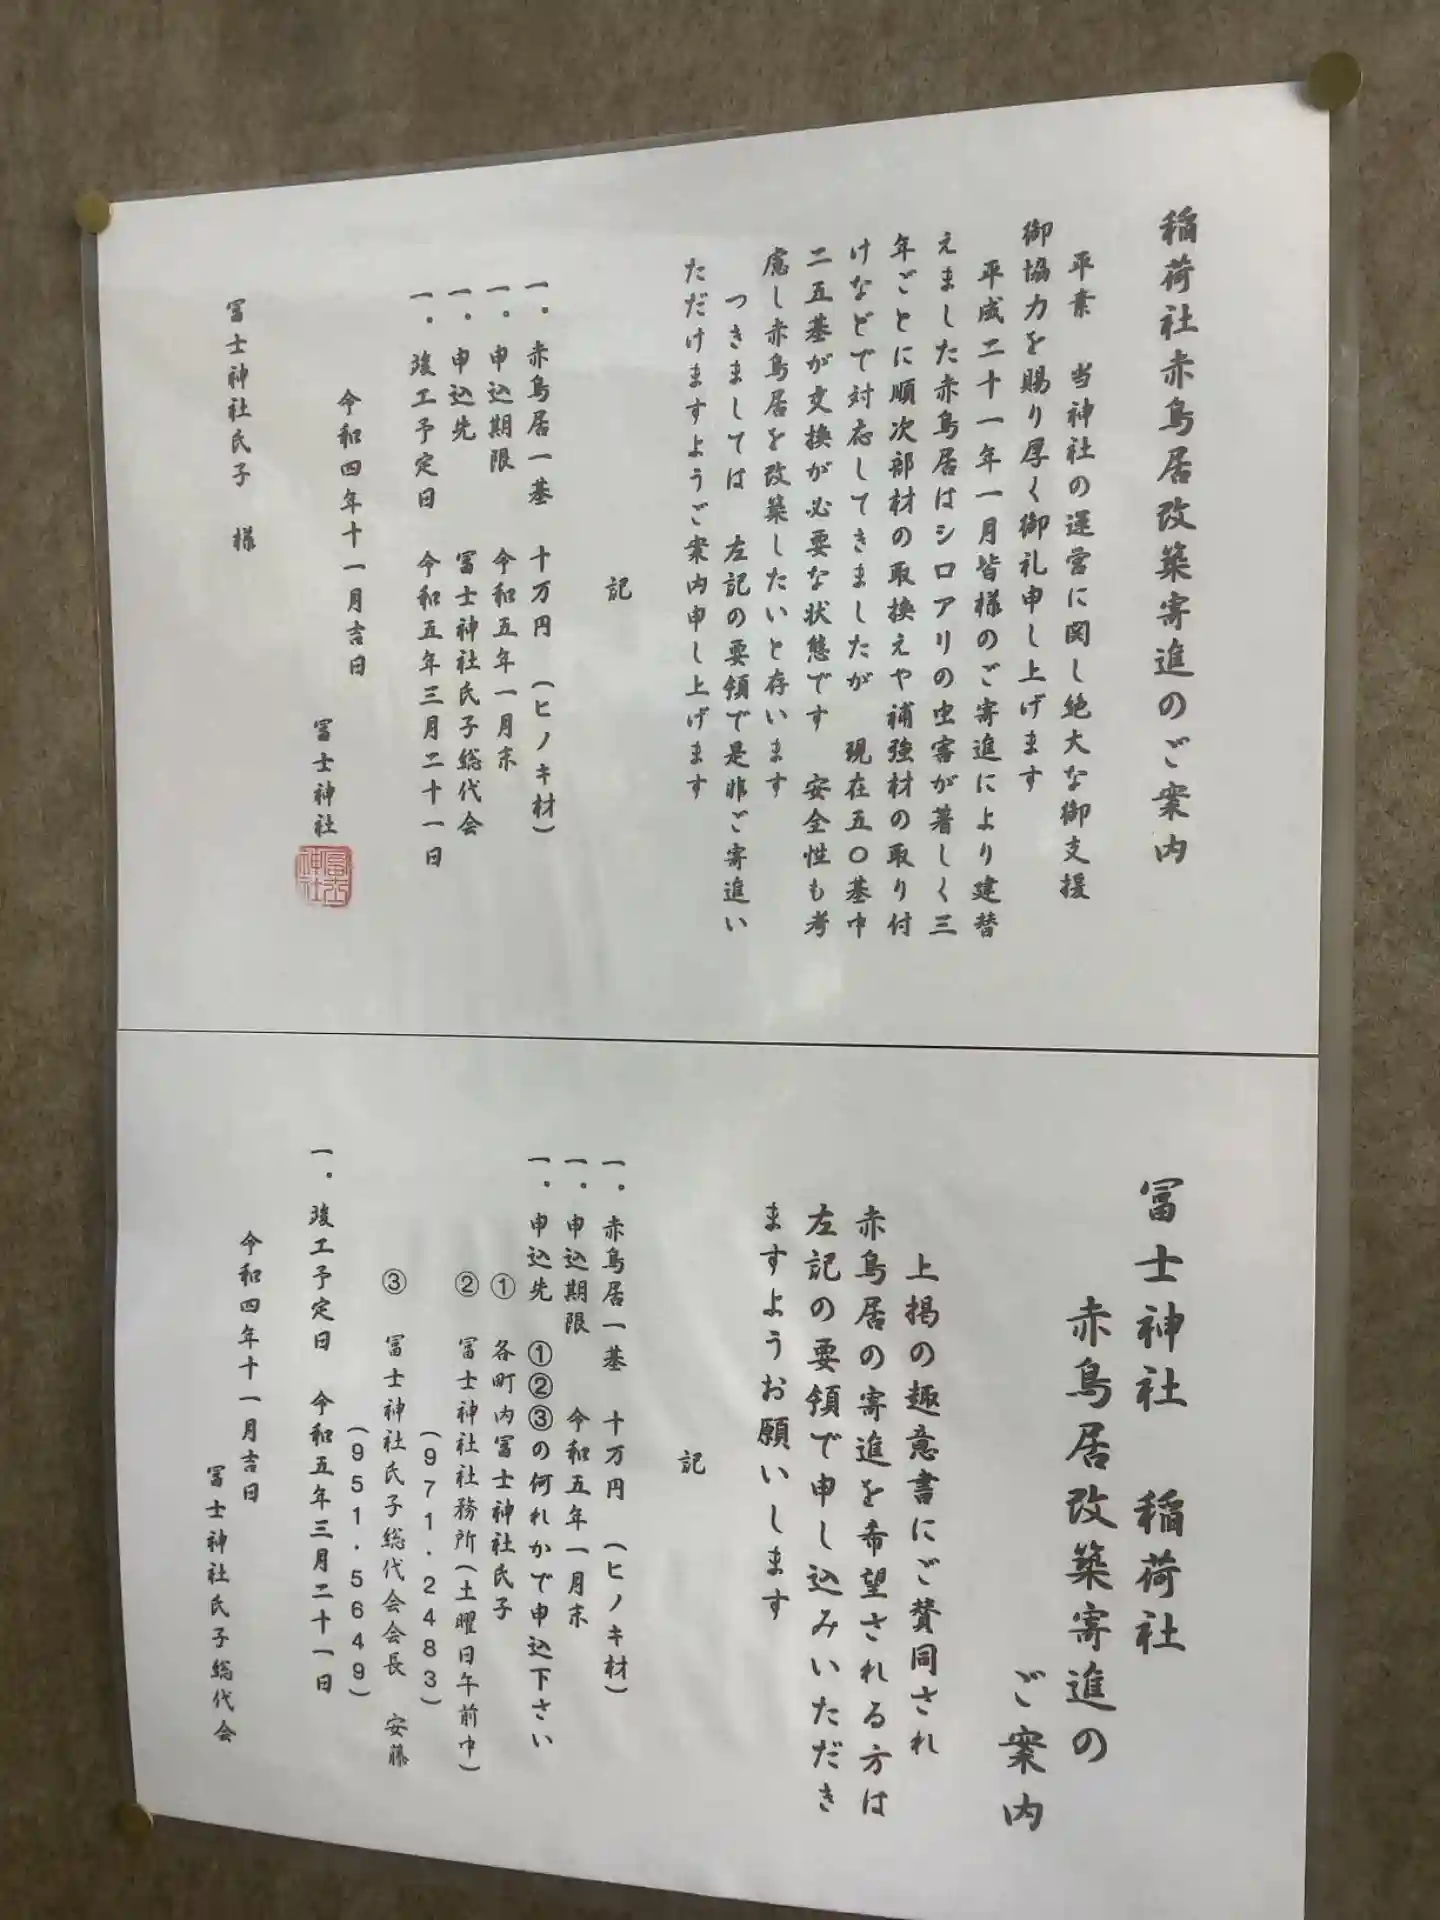 稲荷社赤鳥居改築寄進のご案内
平素 当神社の運営に関し絶大な御支援
御協力を賜り厚く御礼申し上げます
平成二十一年一月皆様のご寄進により建替
えました赤鳥居はシロアリの虫害が著しく三
年ごとに順次部材の取換えや補強材の取り付
けなどで対応してきましたが 現在五〇基中
二五基が交換が必要な状態です 安全性も考
慮し赤鳥居を改築したいと存います
つきましては 左記の要領で是非ご寄進い
ただけますようご案内申し上げます
記
一．赤鳥居一基 十万円 (ヒノキ材)
一．申込期限 令和五年一月末
一．申込先 冨士神社氏子総代会
一．竣工予定日 令和五年三月二十一日
令和四年十一月吉日
冨士神社
冨士神社
冨士神社氏子 様
冨士神社 稲荷社
赤鳥居改築寄進の
ご案内
上掲の趣意書にご賛同され
赤鳥居の寄進を希望される方は
左記の要領で申し込みいただき
ますようお願いします
記
一．赤鳥居一基 十万円 (ヒノキ材)
一．申込期限 令和五年一月末
一．申込先 ①②③の何れかで申込下さい
① 各町内冨士神社氏子
② 冨士神社社務所(土曜日午前中)
(971．2483)
③ 冨士神社氏子総代会会長 安藤
(951．5649)
一．竣工予定日 令和五年三月二十一日
令和四年十一月吉日
冨士神社氏子総代会